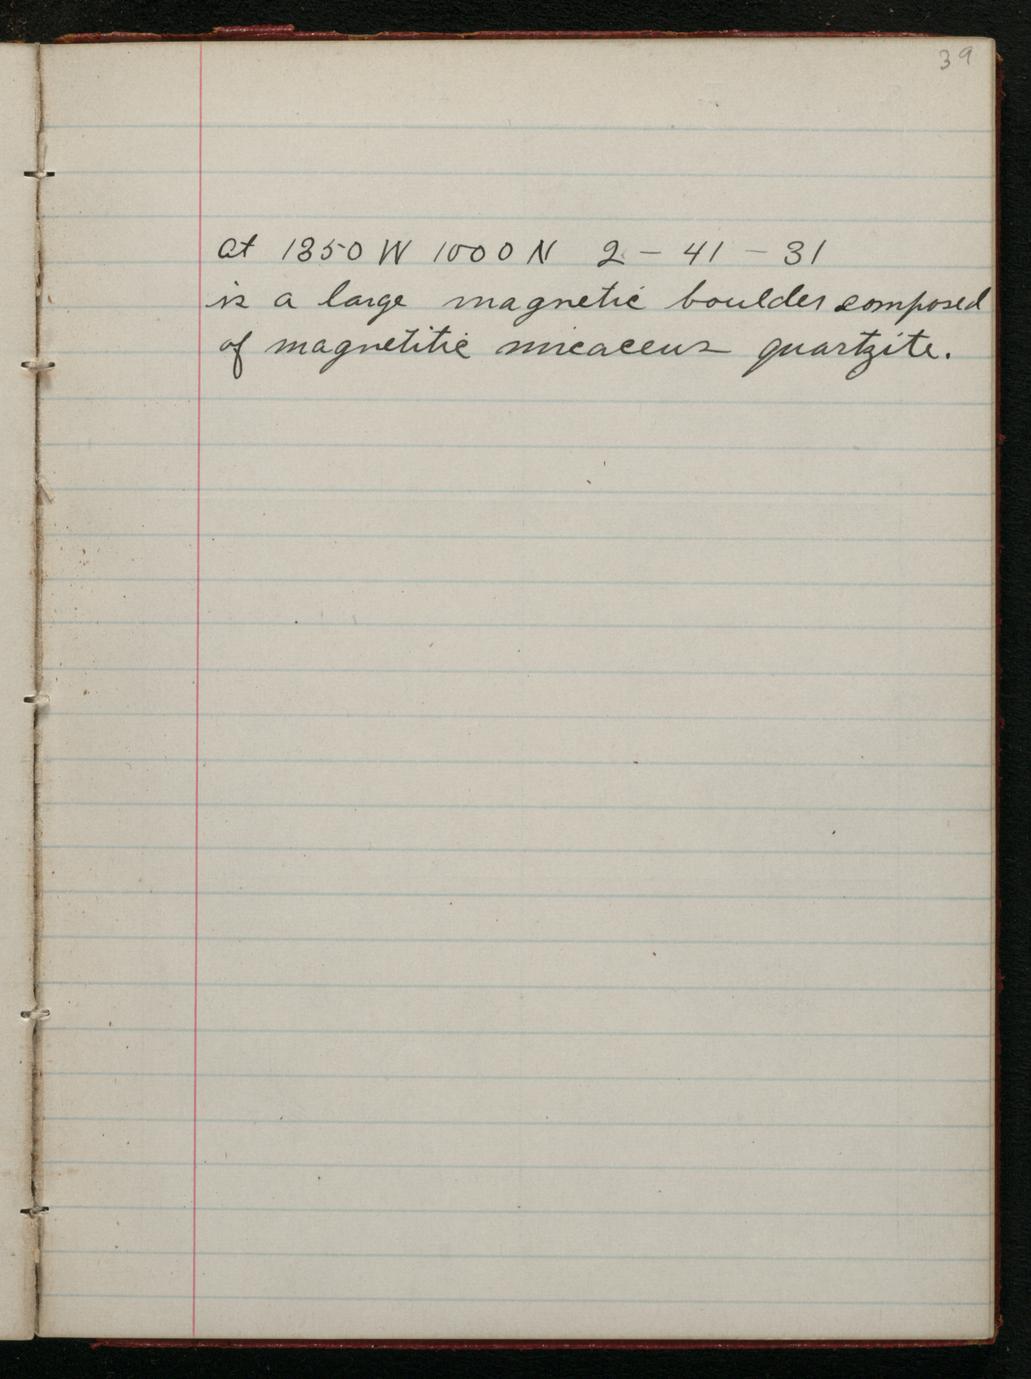 39
at 1350 W 1000 N 2 - 41 - 31
is a large magnetic boulder composed
of magnetitic micaceus quartzite.